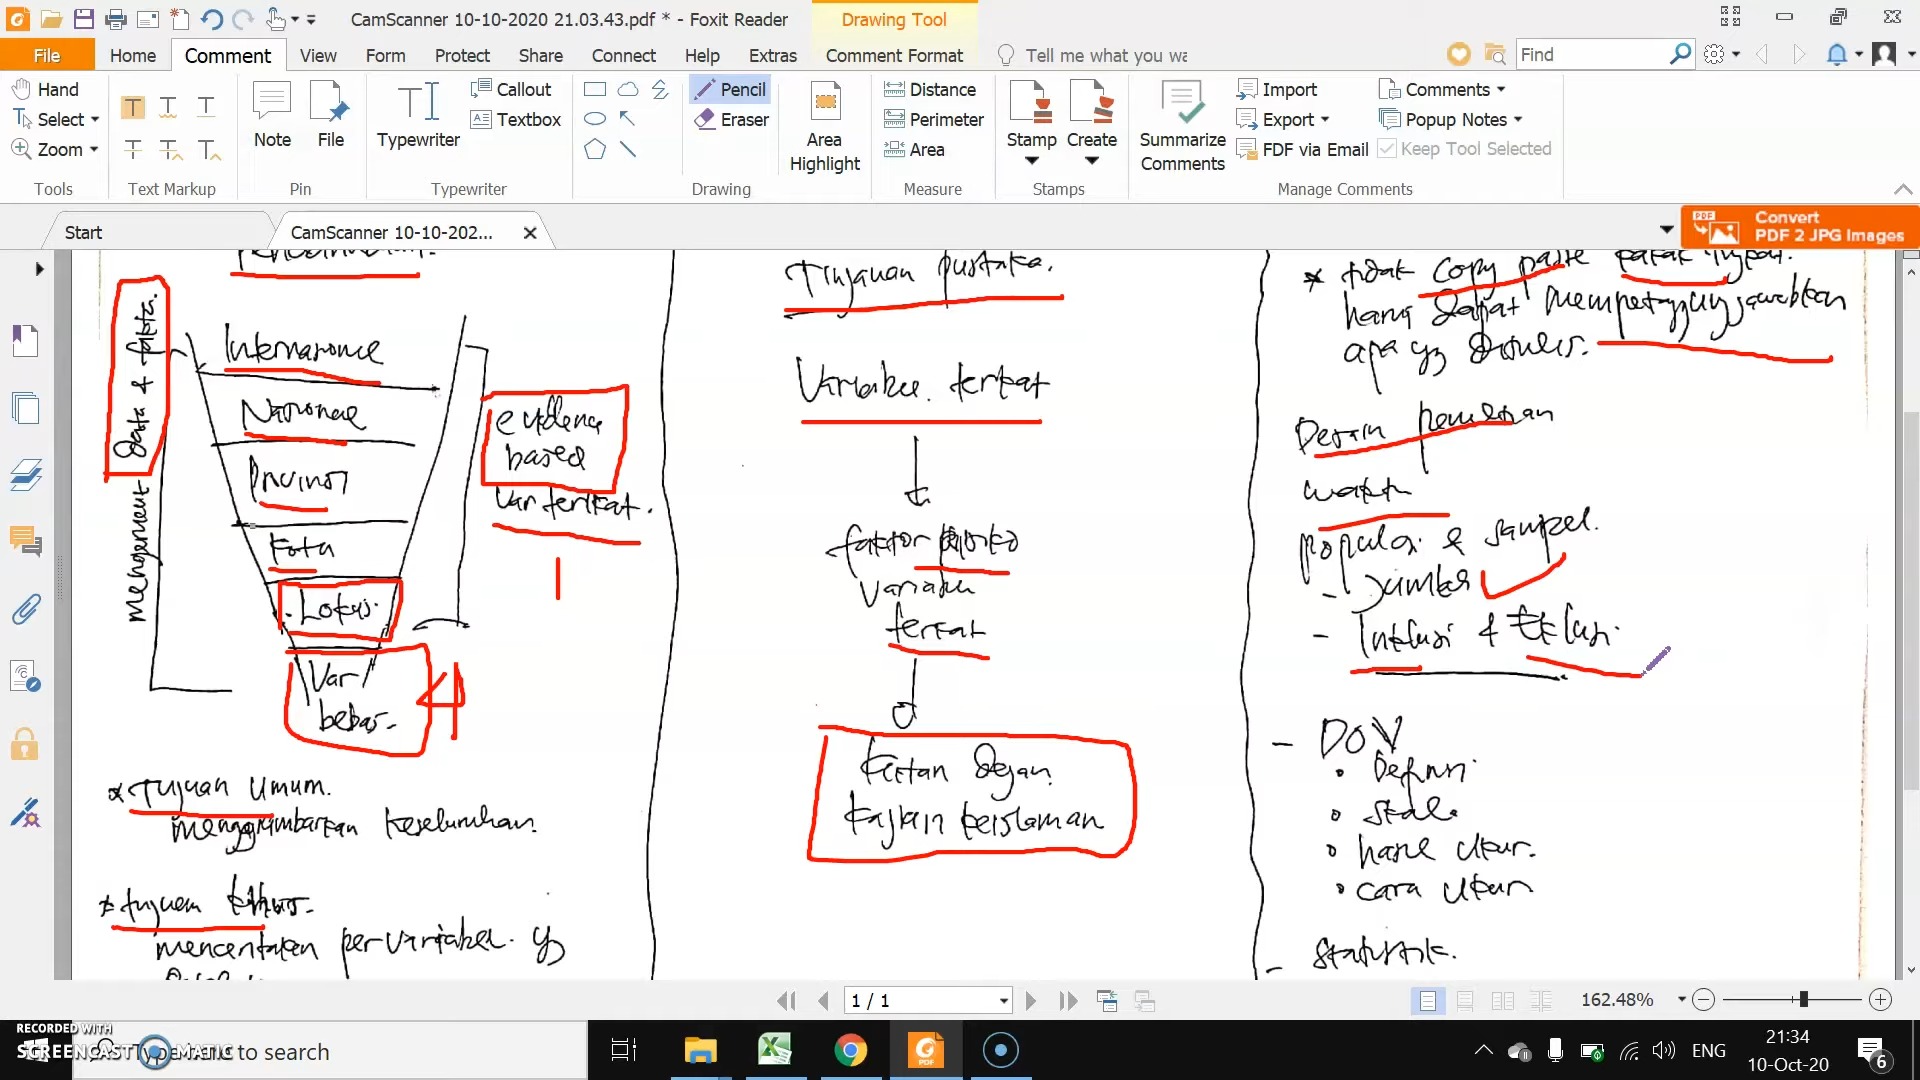 CamScanner 10-10-2020 21.03.43.pdf * - Foxit Reader
Drawing Tool
File
Home
Comment
View
Form
Protect
Share
Connect
Help
Extras
Comment Format
Tell me what you wa
Find
Hand
Select
Zoom
Tools
Text Markup
Note
File
Pin
Typewriter
Callout
Textbox
Typewriter
Pencil
Eraser
Drawing
Area
Highlight
Distance
Perimeter
Area
Measure
Stamp
Create
Stamps
Summarize
Comments
Import
Export
FDF via Email
Comments
Popup Notes
Keep Tool Selected
Manage Comments
Start
CamScanner 10-10-202...
Convert
PDF 2 JPG Images
data & fakta.
mengerucut
Internasional
Nasional
Provinsi
Kota
Lokasi
Var
bebas
evidence
based
Var terikat.
* Tujuan Umum.
menggambarkan keseluruhan.
* tujuan khusus.
per variabel. yg
Tinjauan pustaka.
Variabel terikat
faktor
variabel
terkait
kaitan dengan
kajian keislaman
* tidak copy paste
harus dapat mempertanggungjawabkan
apa yg ditulis.
Desain penelitian
waktu
populasi & sampel.
- Jumlah
- Inklusi & Eksklusi.
- DOV
• Definisi
• Skala
• hasil Ukur.
• cara Ukur
- Statistik.
1 / 1
162.48%
RECORDED WITH
SCREENCAST MATIC
Type here to search
ENG
21:34
10-Oct-20
6